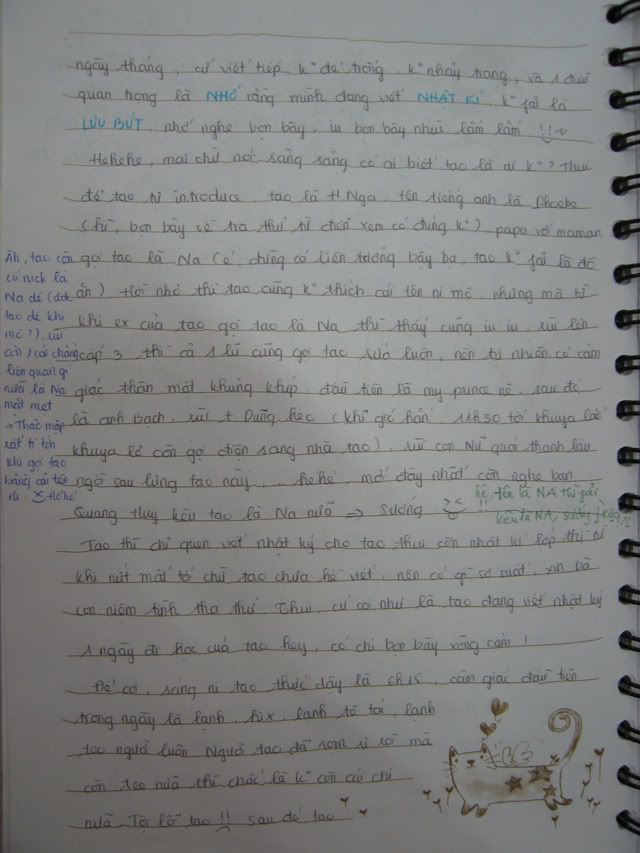 ngày tháng, cứ viết tiếp, k° để trống, k° nhảy trang, và 1 điều
quan trọng là NHỚ rằng mình đang viết NHẬT KÍ, k° fải là
LƯU BÚT, nhớ nghe bọn bây, iu bọn bây nhìu lắm lắm !!~
Hehehe, mai chừ nói sảng sảng có ai biết tao là ai k°? Thui
để tao tự introduce tao là H.Nga, tên tiếng anh là Phoebe
(hì, bọn bây về tra thử từ điển xem có đúng k°), papa với maman
gọi tao là Na (ê, đừng có liên tưởng bậy bạ, tao k° fải là đồ
ăn) Hồi nhỏ thì tao cũng k° thích cái tên ni mô, nhưng mà từ
khi ex của tao gọi tao là Na thì thấy cũng iu iu, rùi lên
cấp 3 thì cả 1 lũ cũng gọi tao rứa luôn, nên tự nhiên có cảm
giác thân mật khủng khíp, đầu tiên là my prince nè, sau đó
là anh Bạch, rùi t Dũng heo (khi gió hắn, 11h30 tối khuya lắc
khuya lơ còn gọi điện sang nhà tao), rùi con Nữ quái thanh lâu
ngồi sau lưng tao này, ... hé hé, mới đây nhất còn nghe bạn
Quang Huy kêu tao là Na nữa => sướng
Tao thì chỉ quen viết nhật ký cho tao, thui còn nhật kí lớp thì từ
khi nứt mắt tới chừ tao chưa hề viết, nên có gì sơ suất, xin bà
con niệm tình tha thứ. Thui, cứ coi như là tao đang viết nhật ký
1 ngày đi học của tao hey, có chi bọn bây ráng cảm !
Để coi, sáng ni tao thức dậy là 6h15, cảm giác đầu tiên
trong ngày là lạnh, hix, lạnh tê tái, lạnh
teo người luôn Người tao đã sẵn sì rồi mà
còn teo nữa thì chắc là k° còn cái chi
nữa Tội lỗi tao !! sau đó tao
Àh, tao còn
có nick là
Na đó (
tao đó khi
mô?), rùi
còn 1 cái chẳng
liên quan gì
nữa là Na
mất mẹt
→ Thảo mập
rất tự tin
khi gọi tao
bằng cái tên
ni. Hé hé
hê, tên là NA thì fải
kêu là NA, sướng j